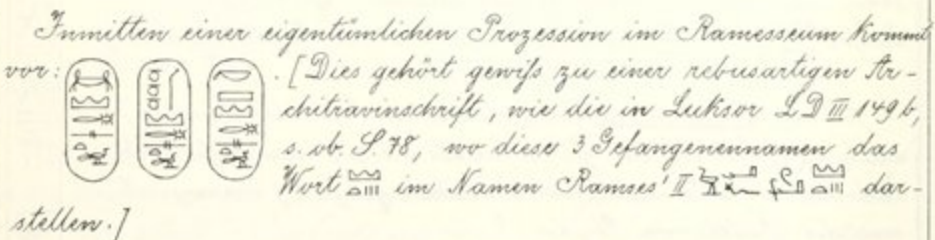 Inmitten einer eigentümlichen Prozession im Ramesseum kommt
vor: . [Dies gehört gewiß zu einer rebusartigen Ar-
chitravinschrift, wie die in Luksor LD III 149 b,
s. ob. S. 78, wo diese 3 Gefangenennamen das
Wort im Namen Ramses' II dar-
stellen.]